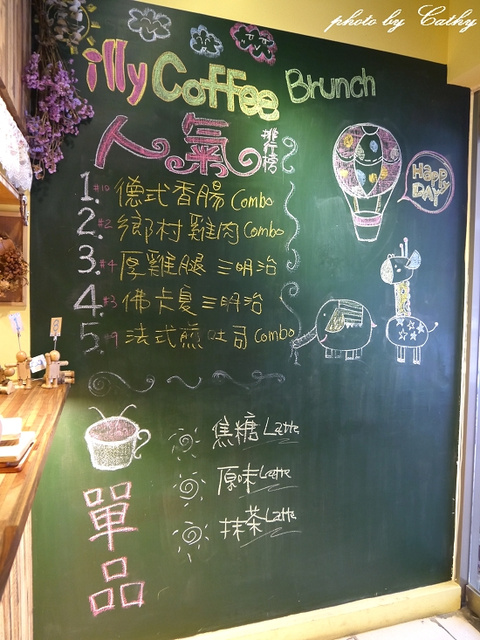 photo by Cathy
illy Coffee Brunch
人氣 排行榜
Happy DAY
1. #10 德式香腸 Combo
2. #2 鄉村雞肉 Combo
3. #4 厚雞腿 三明治
4. #3 佛卡夏 三明治
5. #9 法式煎吐司 Combo
焦糖 Latte
原味 Latte
抹茶 Latte
單品